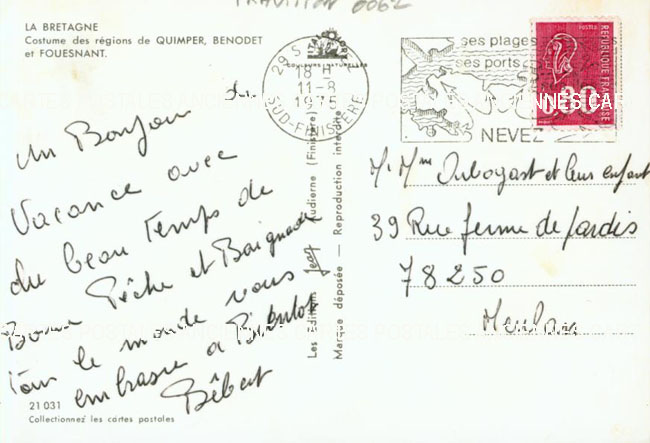 LA BRETAGNE
Costume des régions de QUIMPER, BENODET
et FOUESNANT.
29 S
18 H
11-8
1975
SUD-FINISTÈRE
ses plages
ses ports
NEVEZ
POSTES
REPUBLIQUE FRANCAISE
0,80
un Bonjour
Vacance avec
du beau temps de
Bonne Pêche et Baignade
tout le monde vous
embrasse a Bientot
Bébert
Les Editions Jean Audierne (Finistère)
Marque déposée — Reproduction interdite
Mr Mme Arbogast et leurs enfant
39 Rue ferme de Jardis
78250
Meulan
21 031
Collectionnez les cartes postales
CARTES POSTALES ANCIENNES CARTES